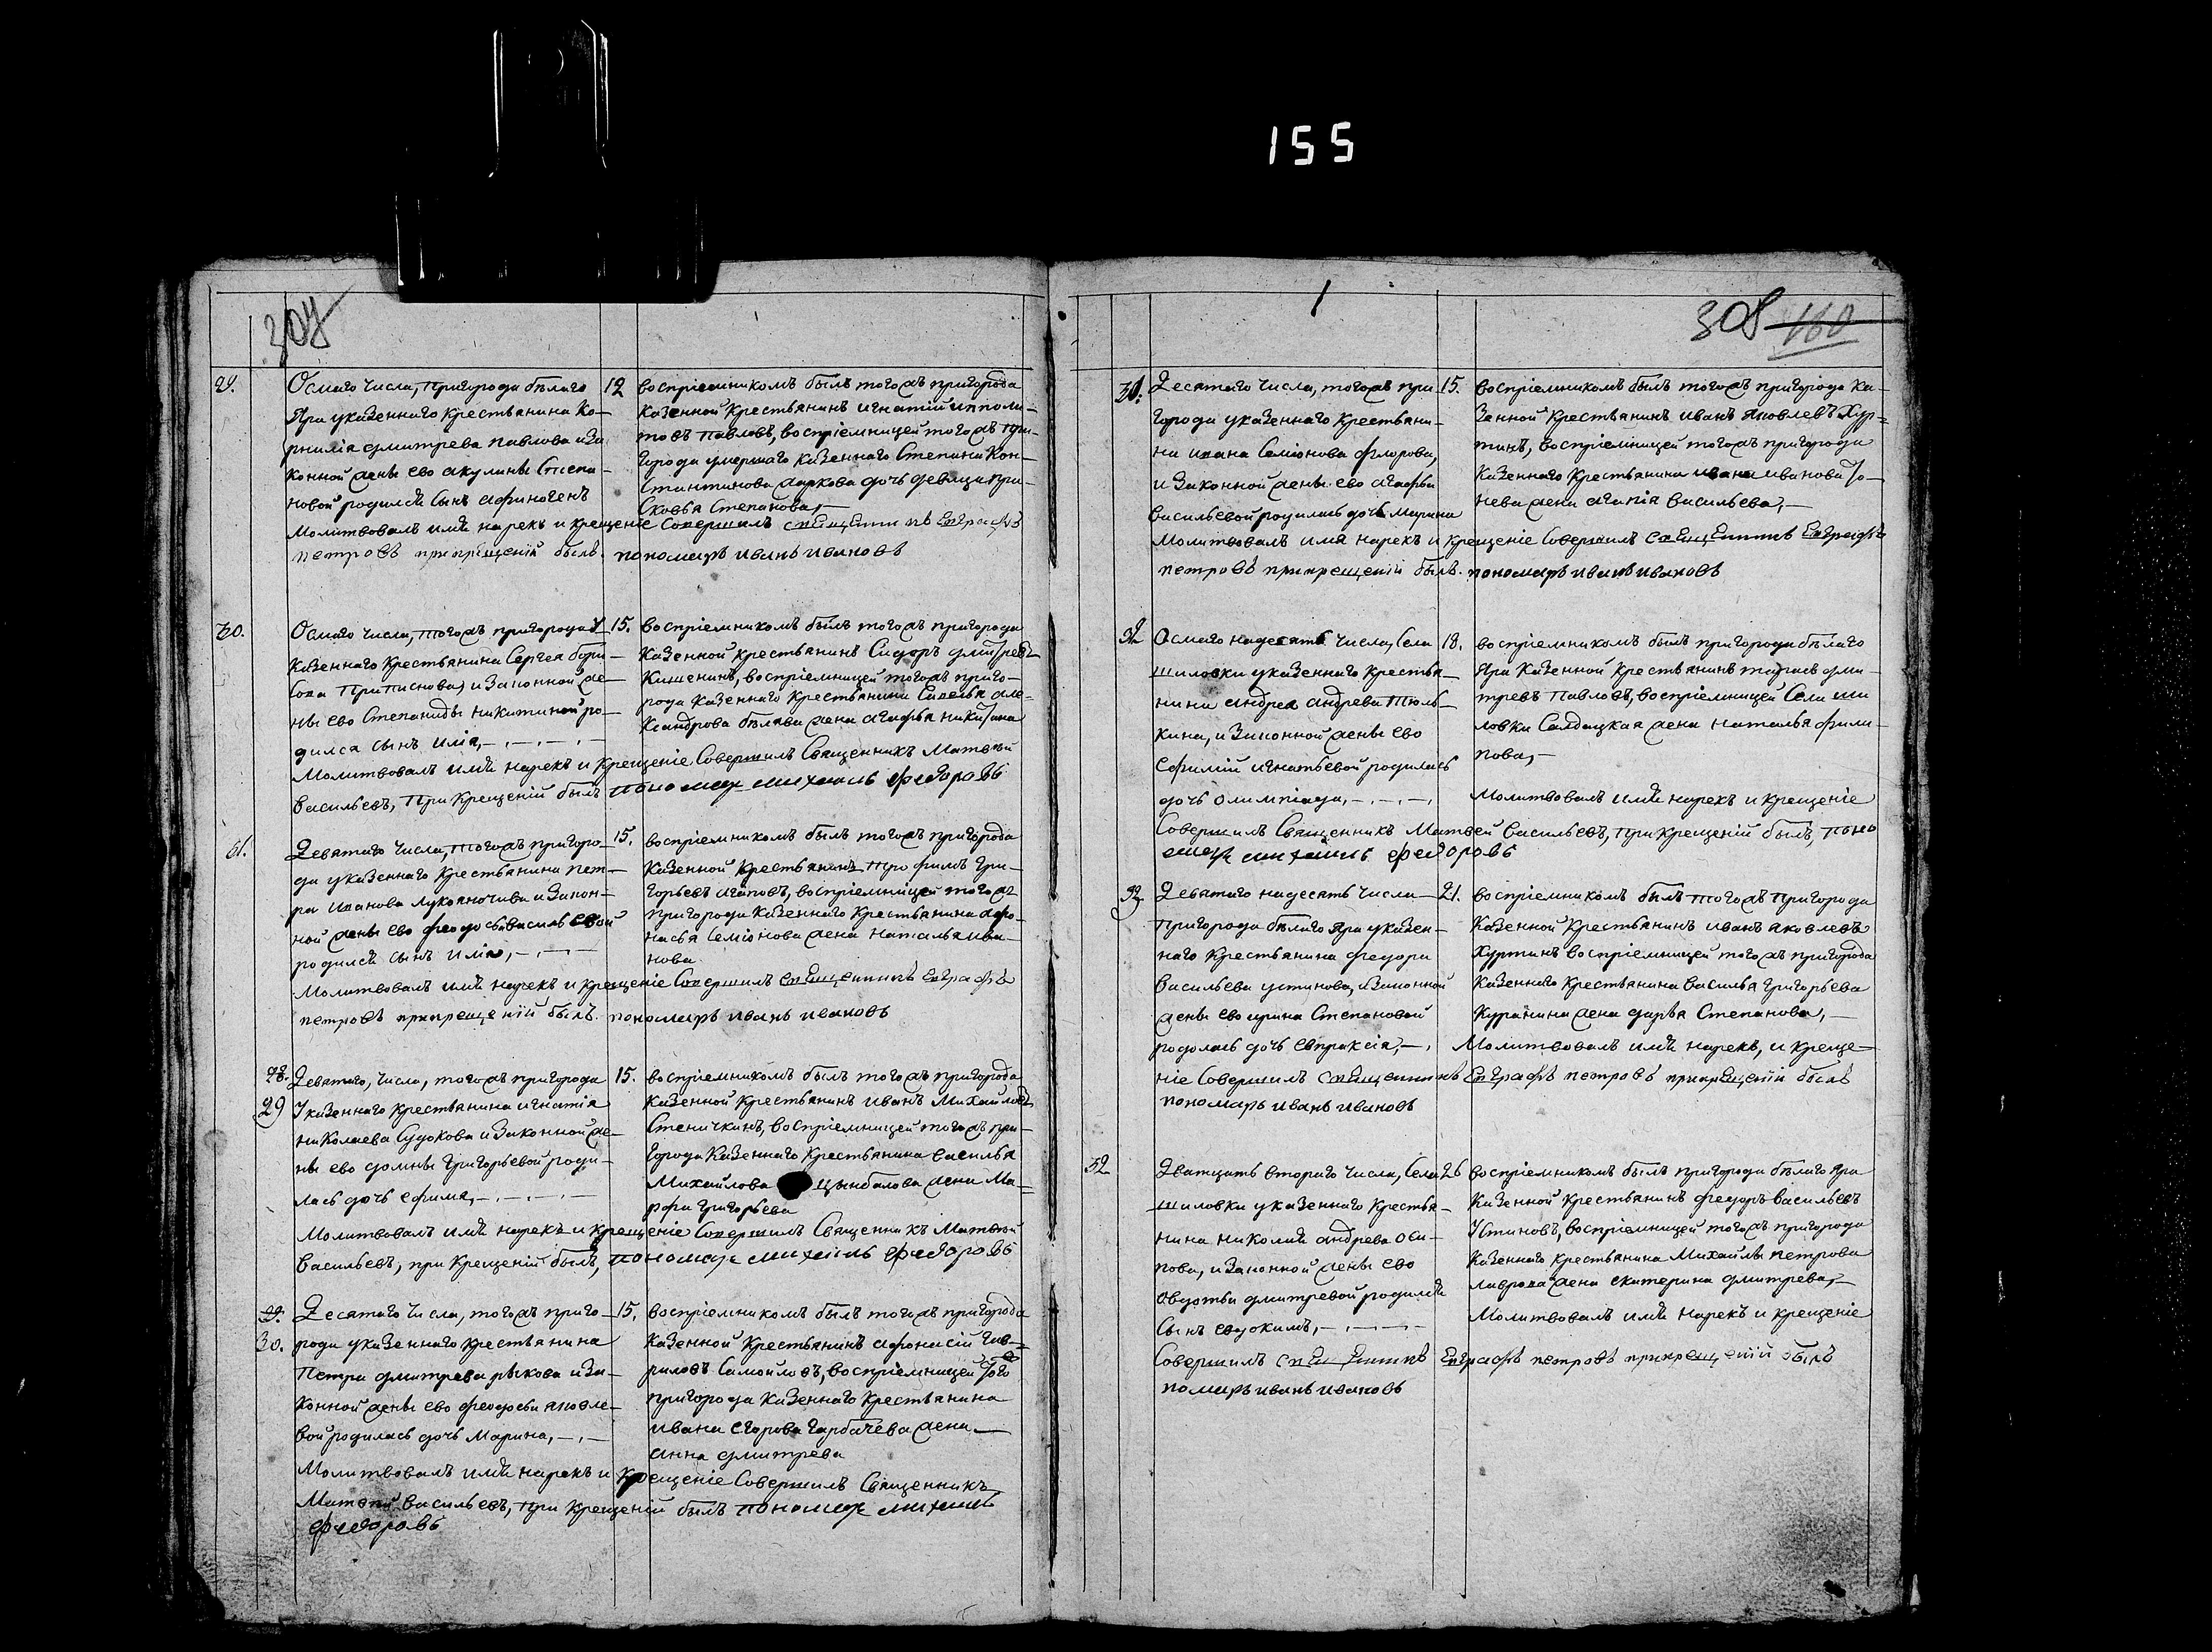 155
307
29.
Осмаго числа, пригорода бѣлаго
Яра указеннаго крестьянина Ко-
рнилія дмитрева павлова и за
конной жены ево акулины Степа-
новой родился сынъ афиногенъ
12
воспріемникомъ былъ тогожъ пригорода
казенной крестьянинъ игнатій иппали-
товъ павловъ, воспріемницей тогожъ при-
города умершаго казеннаго Степана Кон-
стантинова жаркова дочь девица пра-
сковья Степанова,
Молитвовалъ имя нарекъ и крещеніе Совершилъ священникъ Евграфъ
петровъ прикрещеній былъ. пономарь иванъ ивановъ
30.
Осмаго числа, тогожъ пригорода у
казеннаго крестьянина Сергея бори-
сова приписнова и законной же-
ны ево Степаниды никитиной ро-
дился сынъ илія,
15.
воспріемникомъ былъ тогожъ пригорода
казенной крестьянинъ Сидоръ дмитревъ
Кишенинъ, воспріемницей тогожъ приго-
рода казеннаго крестьянина Савелья але-
ксандрова бѣлява жена агафья никитина
Молитвовалъ имя нарекъ и крещеніе Совершилъ Священникъ Матвей
Васильевъ, при крещеній былъ пономарь михаилъ федоровъ
Девятаго числа, тогожъ пригоро-
да указеннаго крестьянина пет-
ра иванова лукояночива и закон-
ной жены ево феодосьи васильевой
родился сынъ илія,
15.
воспріемникомъ былъ тогожъ пригорода
казенной крестьянинъ трофимъ гри-
горьевъ агаповъ, воспріемницей тогожъ
пригорода казеннаго крестьянина афо-
насья Семіонова жена наталья ива-
нова
Молитвовалъ имя нарекъ и крещеніе Совершилъ священникъ Евграфъ
петровъ прикрещеній былъ. пономарь иванъ ивановъ
28.
29
Девятаго, числа, тогожъ пригорода
Указеннаго крестьянина игнатія
николаева Судокова и законной же-
ны ево домны григорьевой роди-
лась дочь ефима,
15.
воспріемникомъ былъ тогожъ пригорода
казенной крестьянинъ иванъ Михайловъ
Стеничкинъ, воспріемницей тогожъ при-
города казеннаго крестьянина василья
Михайлова цынбалова жена Ма-
рфа григорьева
Молитвовалъ имя нарекъ и крещеніе Совершилъ Священникъ Матвей
Васильевъ, при крещеній былъ, пономарь михаилъ федоровъ
29.
30.
Десятаго числа, тогожъ приго-
рода указеннаго крестьянина
Петра дмитрева рыкова и за-
конной жены ево феодосьи яковле-
вой родилась дочь Марина,
15.
воспріемникомъ былъ тогожъ пригорода
казенной крестьянинъ афонасій гав-
риловъ Самойловъ, воспріемницей того
пригорода казеннаго крестьянина
ивана егорова гарбачева жена
анна дмитрева
Молитвовалъ имя нарекъ и крещеніе Совершилъ Священникъ
Матвей Васильевъ, при крещеній былъ пономарь михаилъ
федоровъ
308 160
31.
Десятаго числа, тогожъ при
города указеннаго крестьяни-
на ивана Семіонова флорова,
и законной жены ево агафьи
васильевой родилась дочь марина
15.
воспріемникомъ былъ тогожъ пригорода ка-
зенной крестьянинъ иванъ яковлевъ Хур-
тинъ, воспріемницей тогожъ пригорода
казеннаго крестьянина ивана иванова
нева жена агапія васильева,
Молитвовалъ имя нарекъ и крещеніе Совершилъ священникъ Евграфъ
петровъ прикрещеній былъ. пономарь иванъ ивановъ
Осмаго надесять числа, Села
шиловки указеннаго крестья-
нина андрея андрева тюль-
кина, и законной жены ево
софиіи игнатьевой родилась
дочь олимпіада,
18.
воспріемникомъ былъ пригорода бѣлаго
Яра казенной крестьянинъ тарасъ дми-
тревъ павловъ, воспріемницей Села ши
ловки Салдацкая жена наталья фили-
пова,
Молитвовалъ имя нарекъ и крещеніе
Совершилъ Священникъ Матвей Васильевъ, при крещеній былъ, поно
марь михаилъ федоровъ
Девятаго надесять числа
пригорода бѣлаго Яра указен-
наго крестьянина федора
васильева устинова, и законной
жены ево ирина Степановой
родолась дочь евпраксія,
21.
воспріемникомъ былъ тогожъ пригорода
казенной крестьянинъ иванъ яковлевъ
Хуртинъ воспріемницей тогожъ пригорода
казеннаго крестьянина василья григорьева
Куранина жена дарья Степанова,
Молитвовалъ имя нарекъ, и креще-
ніе Совершилъ священникъ Евграфъ петровъ прикрещеній былъ
пономарь иванъ ивановъ
32
Дватцать втораго числа, Села
шиловки указеннаго крестья-
нина николая андрева оси-
пова, и законной жены ево
овдотьи дмитревой родился
сынъ евдокимъ,
26
воспріемникомъ былъ пригорода бѣлаго Яра
казенной крестьянинъ федоръ васильевъ
Устиновъ, воспріемницей тогожъ пригорода
казеннаго крестьянина Михайлы петрова
лаврова жена екатерина дмитрева,
Молитвовалъ имя нарекъ и крещеніе
Совершилъ священникъ Евграфъ петровъ прикрещеній былъ
помарь иванъ ивановъ